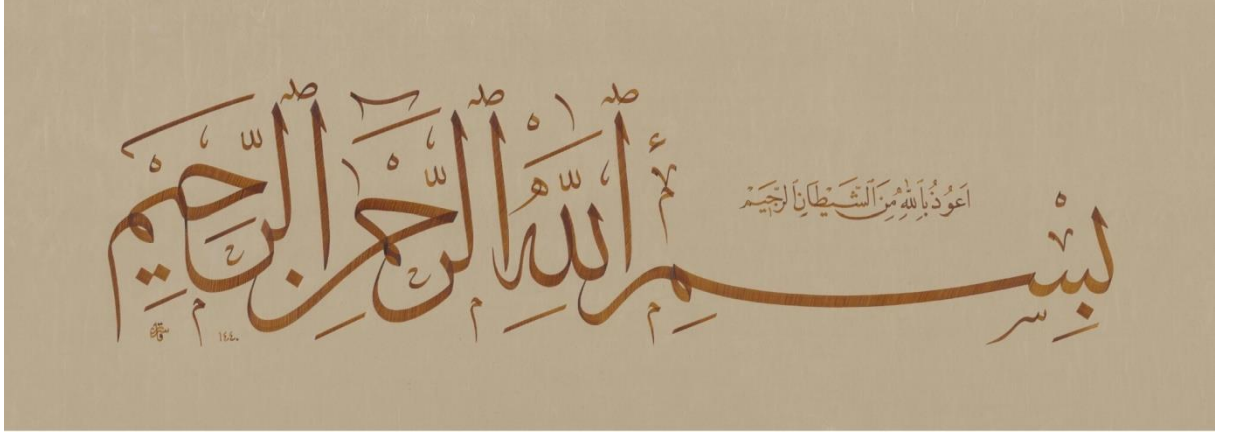 اَعُوذُ بِاللّٰهِ مِنَ الشَّيْطَانِ الرَّجِيمْ
بِسْمِ ٱللَّهِ ٱلرَّحْمٰنِ ٱلرَّحِيمِ
١٤٤٠